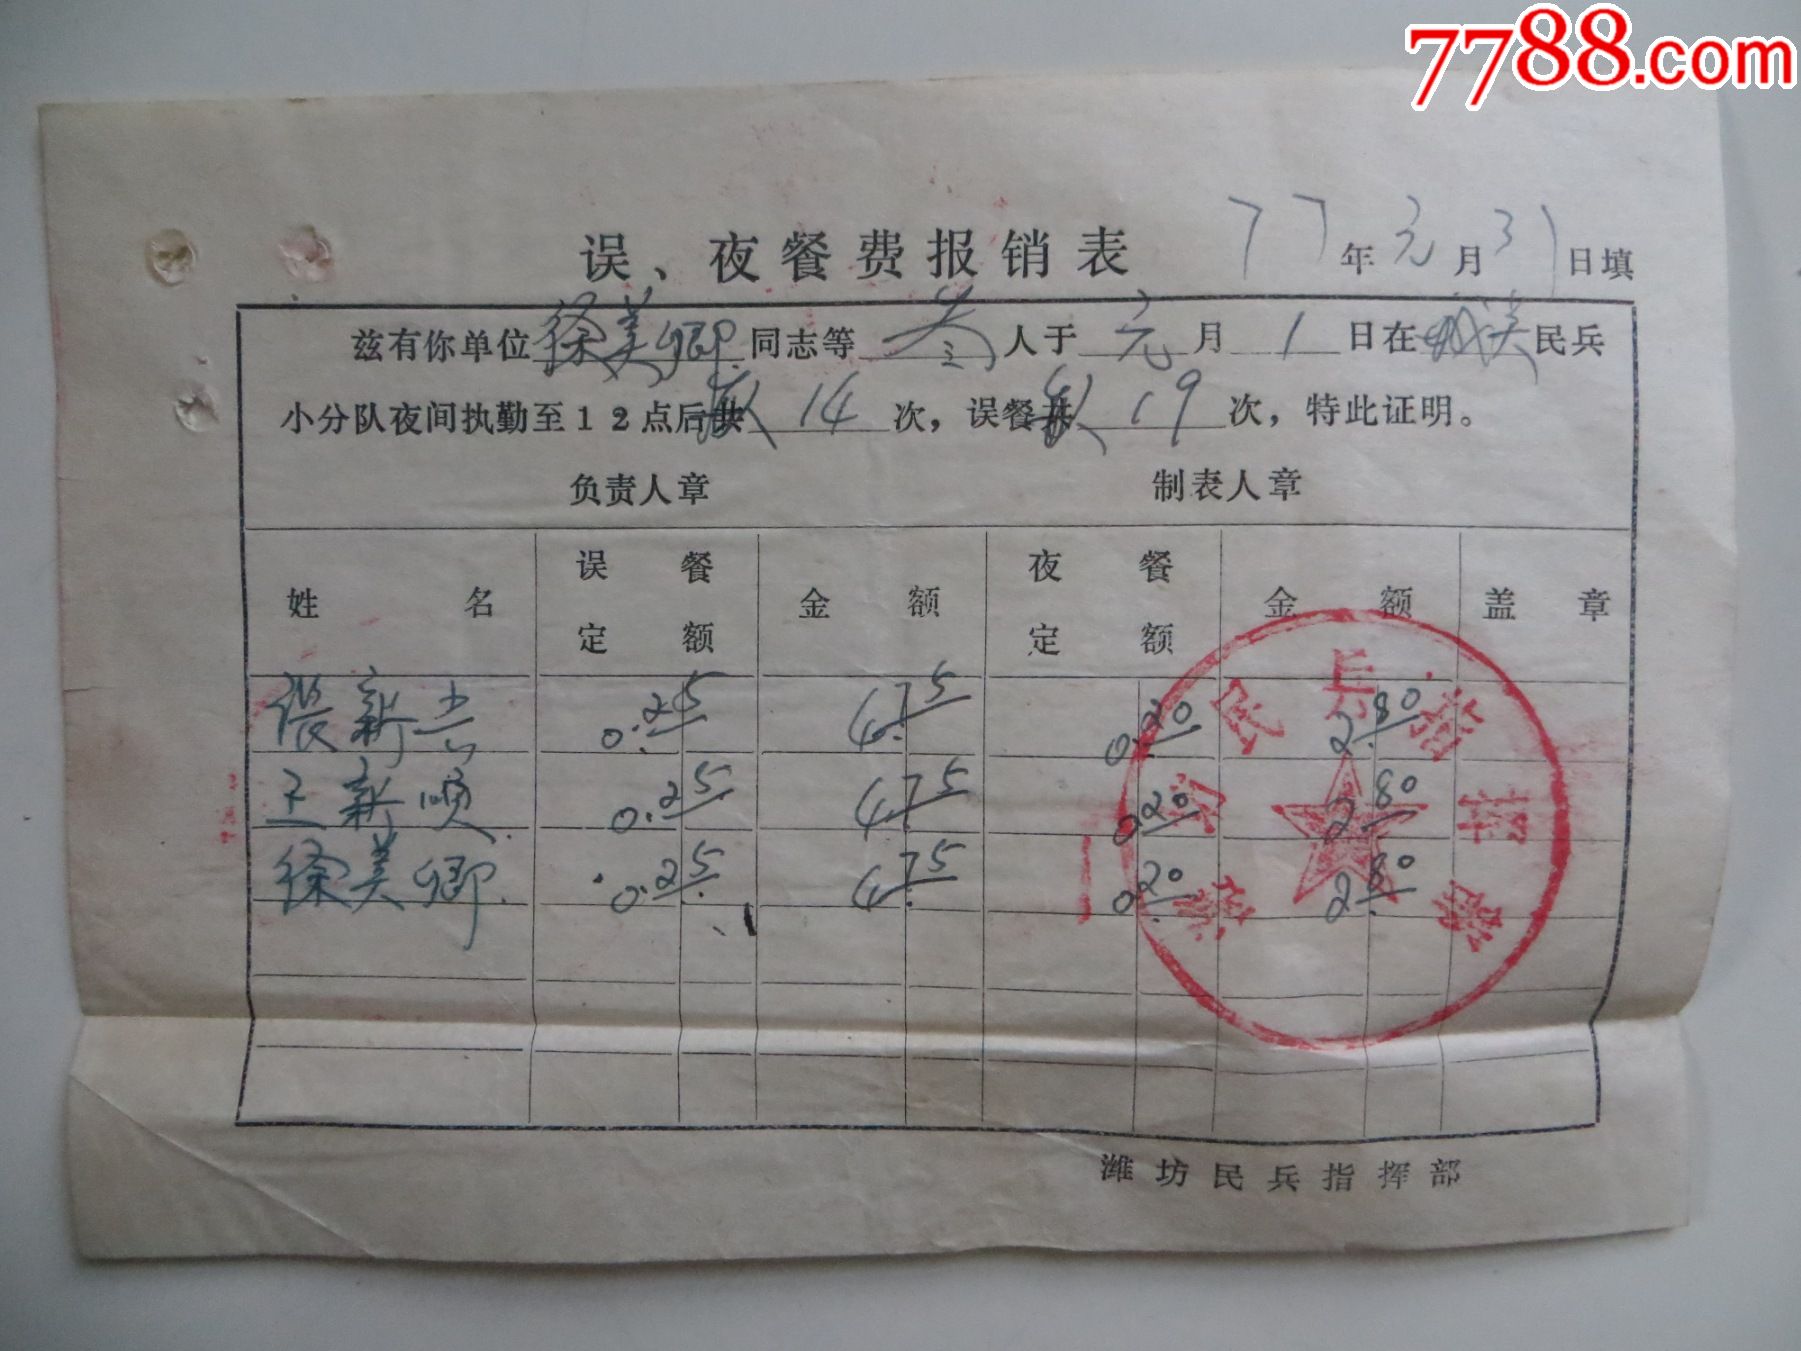 7788.com
误、夜餐费报销表 77年元月31日填
兹有你单位徐美卿同志等叁人于元月1日在城关民兵
小分队夜间执勤至12点后共14次，误餐共19次，特此证明。
负责人章 制表人章
姓名 误餐定额 金额 夜餐定额 金额 盖章
张新 0.25 4.75 0.20 2.80
王新顺 0.25 4.75 0.20 2.80
徐美卿 0.25 4.75 0.20 2.80
民兵指挥部
潍坊民兵指挥部